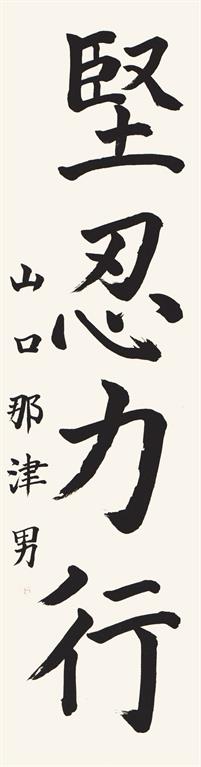 堅忍力行
山口那津男